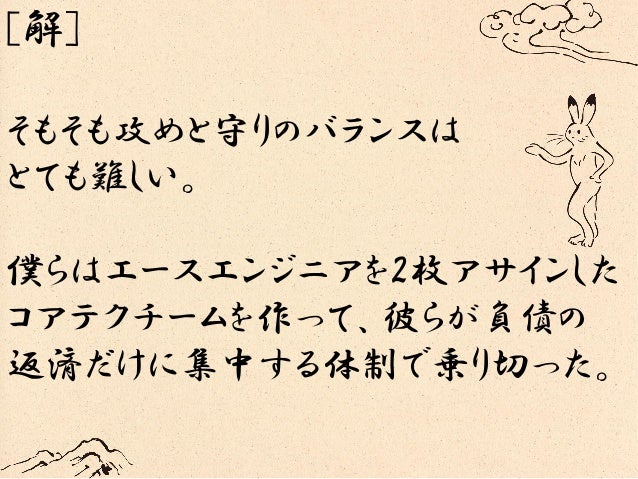 [解]
そもそも攻めと守りのバランスは
とても難しい。
僕らはエースエンジニアを2枚アサインした
コアテクチームを作って、彼らが負債の
返済だけに集中する体制で乗り切った。